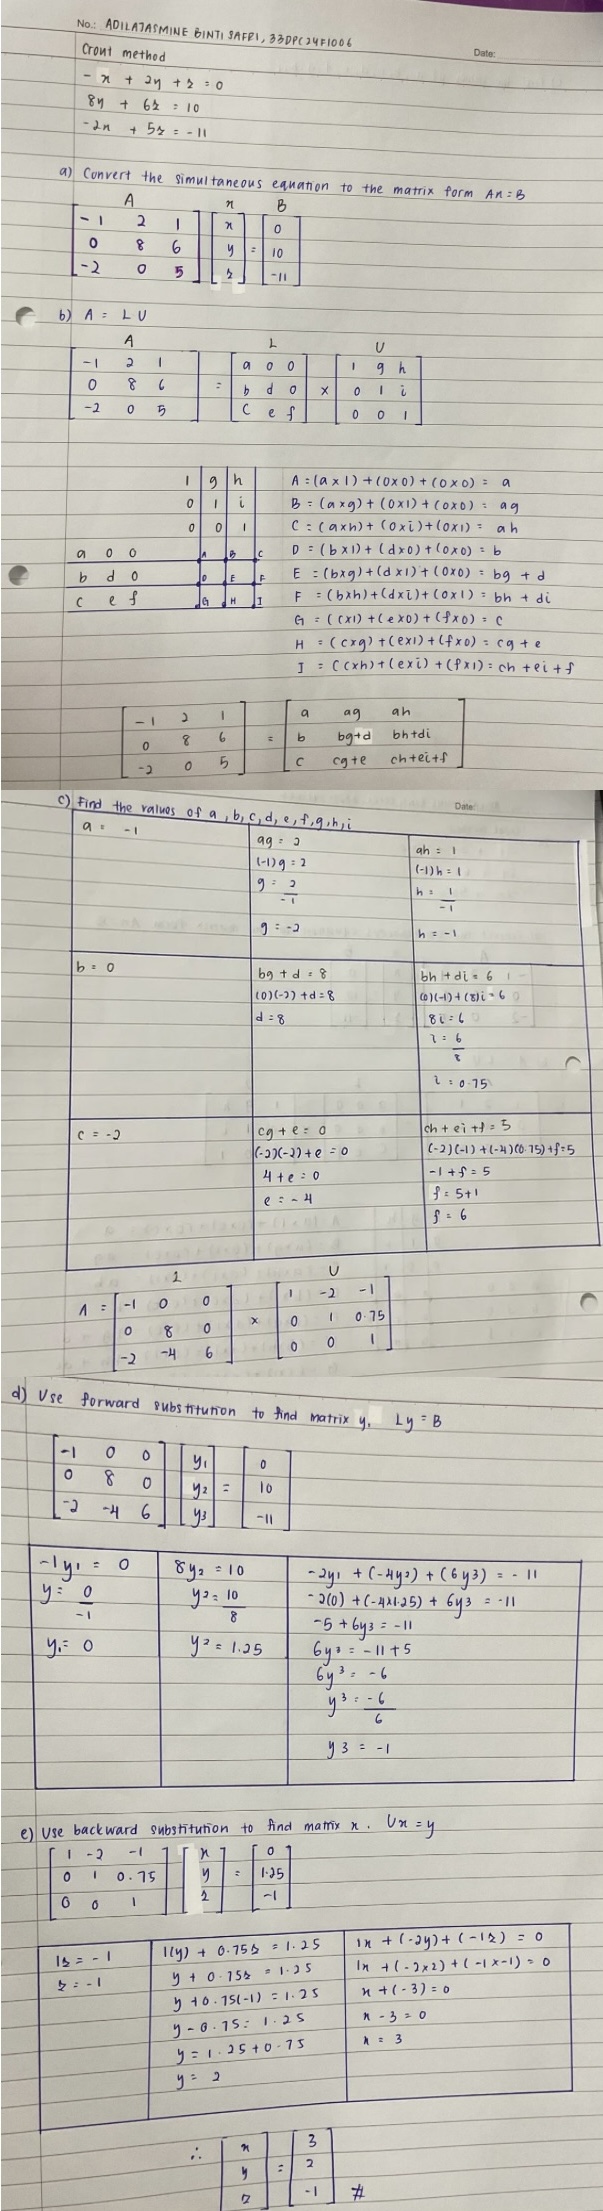 No.: ADILAJASMINE BINTI SAFRI, 33DPC24F1006
Date:
Crout method
- x + 2y + z = 0
8y + 6z = 10
-2x + 5z = -11
a) Convert the simultaneous equation to the matrix form Ax = B
A x B
-1 2 1 x 0
0 8 6 y = 10
-2 0 5 z -11
b) A = L U
A L U
-1 2 1 a 0 0 1 g h
0 8 6 = b d 0 x 0 1 i
-2 0 5 c e f 0 0 1
1 g h A = (a x 1) + (0x0) + (0x0) = a
0 1 i B = (axg) + (0x1) + (0x0) = ag
0 0 1 C = (axh) + (0xi) + (0x1) = ah
a 0 0 A B C D = (bx1) + (dx0) + (0x0) = b
b d 0 D E F E = (bxg) + (dx1) + (0x0) = bg + d
c e f G H I F = (bxh) + (dxi) + (0x1) = bh + di
G = (cx1) + (ex0) + (fx0) = c
H = (cxg) + (ex1) + (fx0) = cg + e
I = (cxh) + (exi) + (fx1) = ch + ei + f
-1 2 1 a ag ah
0 8 6 = b bg+d bh+di
-2 0 5 c cg+e ch+ei+f
Date:
c) Find the values of a, b, c, d, e, f, g, h, i
a = -1
ag = 2
(-1)g = 2
g = 2
-1
g = -2
ah = 1
(-1)h = 1
h = 1
-1
h = -1
b = 0
bg + d = 8
(0)(-2) + d = 8
d = 8
bh + di = 6
(0)(-1) + (8)i = 6
8i = 6
i = 6
8
i = 0.75
c = -2
cg + e = 0
(-2)(-2) + e = 0
4 + e = 0
e = -4
ch + ei + f = 5
(-2)(-1) + (-4)(0.75) + f = 5
-1 + f = 5
f = 5+1
f = 6
L U
A = -1 0 0 1 -2 -1
0 8 0 x 0 1 0.75
-2 -4 6 0 0 1
d) Use forward substitution to find matrix y. Ly = B
-1 0 0 y1 0
0 8 0 y2 = 10
-2 -4 6 y3 -11
-1y1 = 0
y = 0
-1
y1 = 0
8y2 = 10
y2 = 10
8
y2 = 1.25
-2y1 + (-4y2) + (6y3) = -11
-2(0) + (-4x1.25) + 6y3 = -11
-5 + 6y3 = -11
6y3 = -11 + 5
6y3 = -6
y3 = -6
6
y3 = -1
e) Use backward substitution to find matrix x. Ux = y
1 -2 -1 x 0
0 1 0.75 y = 1.25
0 0 1 z -1
1z = -1
z = -1
1(y) + 0.75z = 1.25
y + 0.75z = 1.25
y + 0.75(-1) = 1.25
y - 0.75 = 1.25
y = 1.25 + 0.75
y = 2
1x + (-2y) + (-1z) = 0
1x + (-2x2) + (-1x-1) = 0
x + (-3) = 0
x - 3 = 0
x = 3
∴ x 3
y = 2
z -1 #